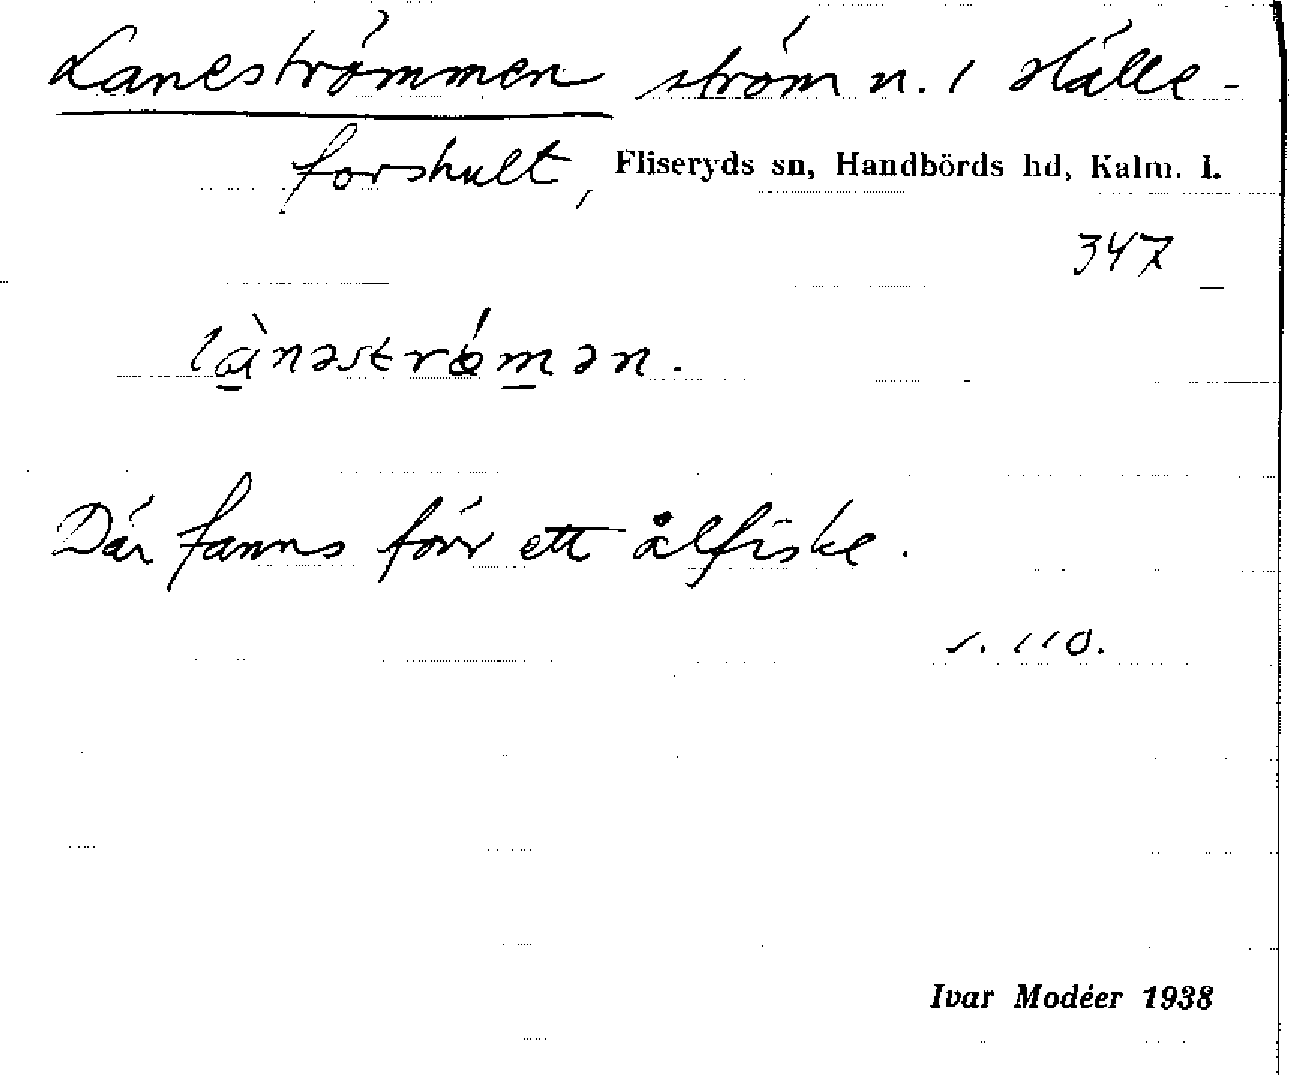 Laneströmmen ström n. 1 Hälle-
forshult, Fliseryds sn, Handbörds hd, Kalm. l.
347
là̱nəstrǿm̱ən.
Där fanns förr ett ålfiske.
s. 110.
Ivar Modéer 1938